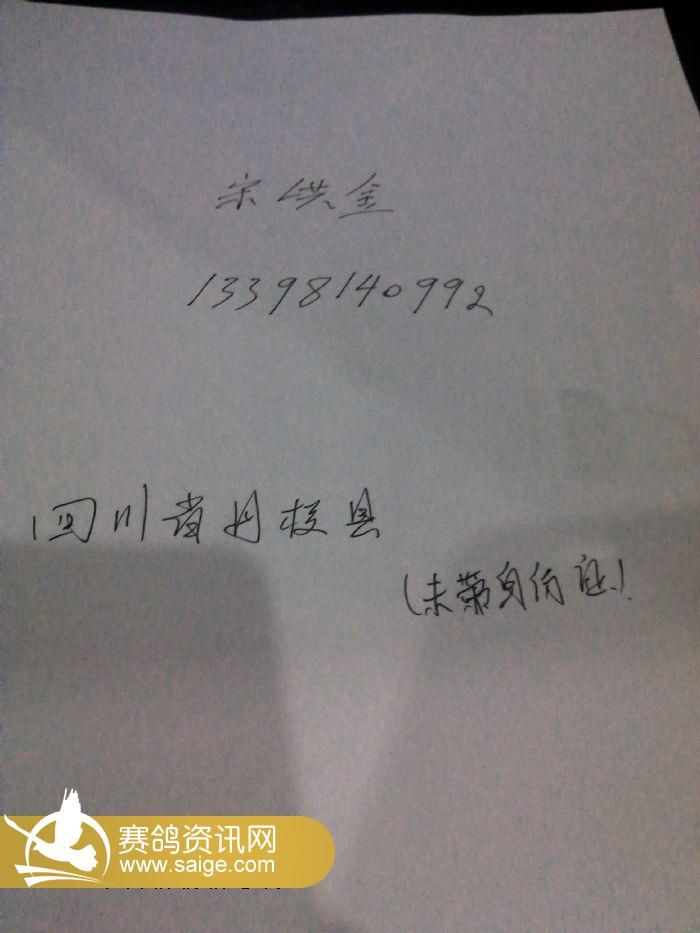 宋洪金
13398140992
四川省丹棱县
(未带身份证)
赛鸽资讯网
www.saige.com